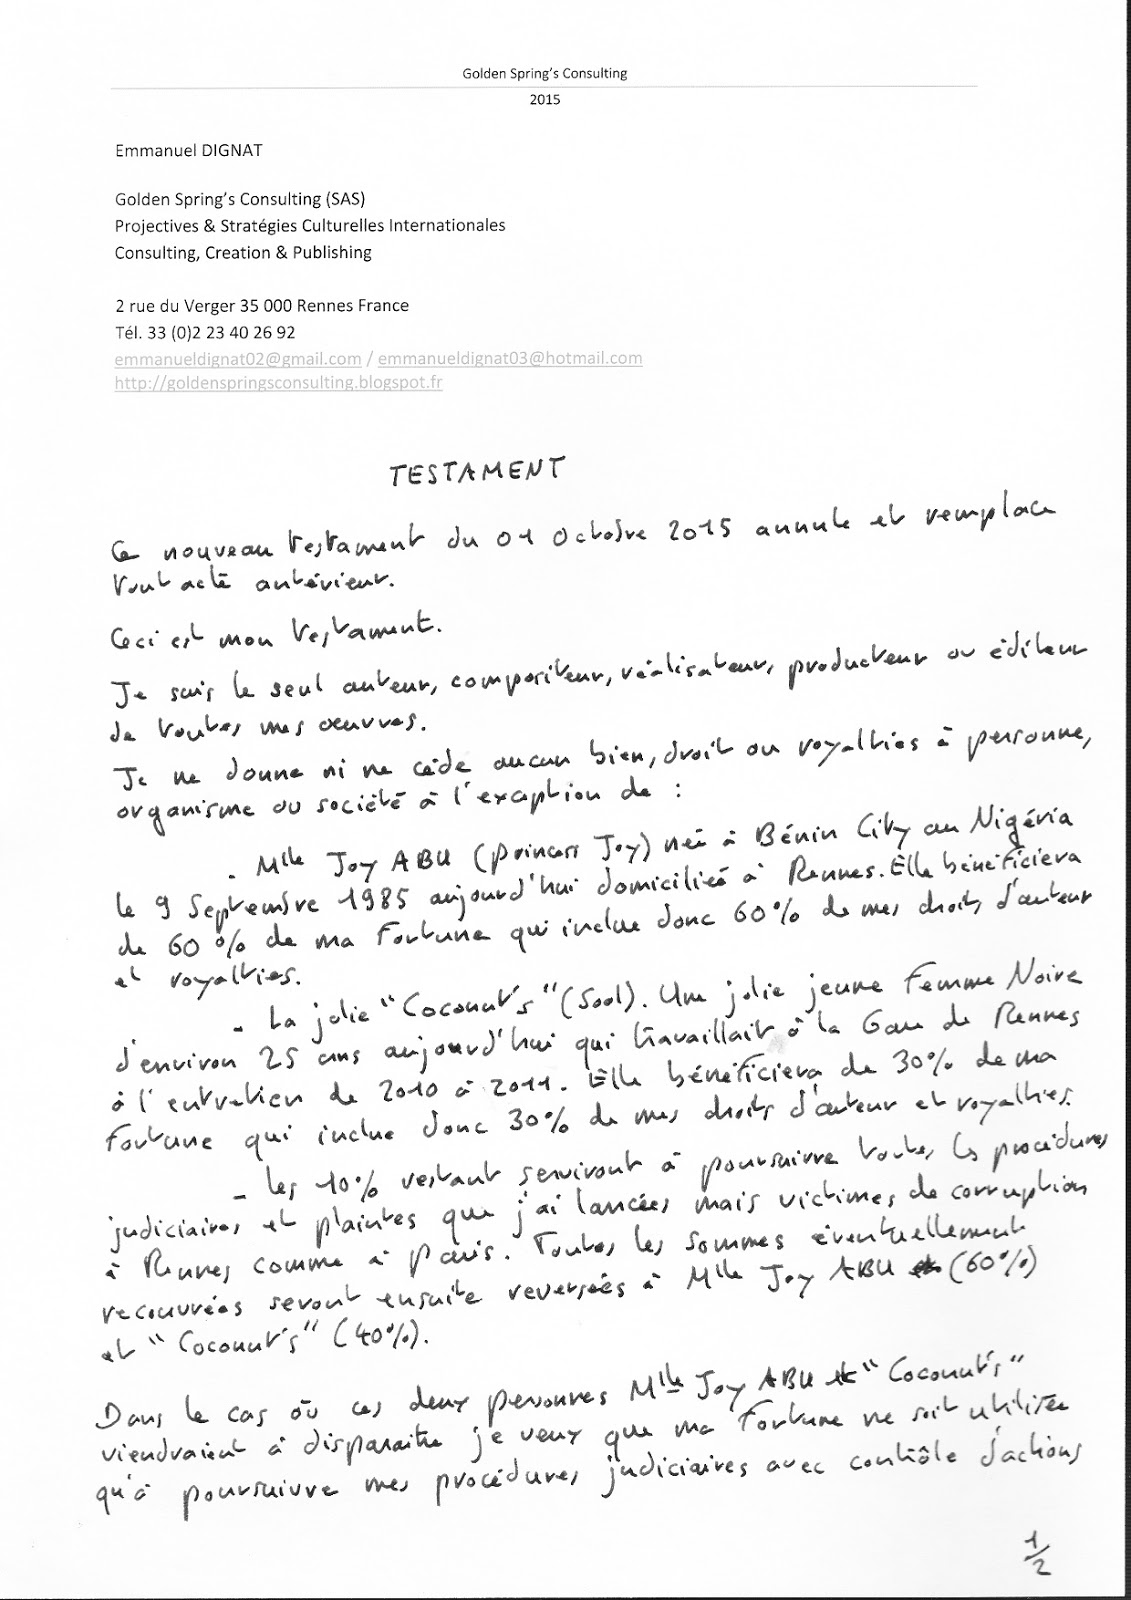 Golden Spring's Consulting
2015
Emmanuel DIGNAT
Golden Spring's Consulting (SAS)
Projectives & Stratégies Culturelles Internationales
Consulting, Creation & Publishing
2 rue du Verger 35 000 Rennes France
Tél. 33 (0)2 23 40 26 92
emmanueldignat02@gmail.com / emmanueldignat03@hotmail.com
http://goldenspringsconsulting.blogspot.fr
TESTAMENT
Ce nouveau testament du 01 Octobre 2015 annule et remplace
tout acte antérieur.
Ceci est mon testament.
Je suis le seul auteur, compositeur, réalisateur, producteur ou éditeur
de toutes mes œuvres.
Je ne donne ni ne cède aucun bien, droit ou royalties à personne,
organisme ou société à l'exception de :
- Mlle Joy ABU (Princess Joy) née à Bénin City au Nigéria
le 9 Septembre 1985 aujourd'hui domiciliée à Rennes. Elle bénéficiera
de 60 % de ma Fortune qui inclue donc 60% de mes droits d'auteur
et royalties.
- La jolie "Coconut's" (Sool). Une jolie jeune Femme Noire
d'environ 25 ans aujourd'hui qui travaillait à la Gare de Rennes
à l'entretien de 2010 à 2011. Elle bénéficiera de 30% de ma
Fortune qui inclue donc 30% de mes droits d'auteur et royalties.
- Les 10% restant serviront à poursuivre toutes les procédures
judiciaires et plaintes que j'ai lancées mais victimes de corruption
à Rennes comme à Paris. Toutes les sommes éventuellement
recouvrées seront ensuite reversées à Mlle Joy ABU (60%)
et "Coconut's" (40%).
Dans le cas où ces deux personnes Mlle Joy ABU et "Coconut's"
viendraient à disparaitre je veux que ma Fortune ne soit utilisée
qu'à poursuivre mes procédures judiciaires avec contrôle d'actions
1/2